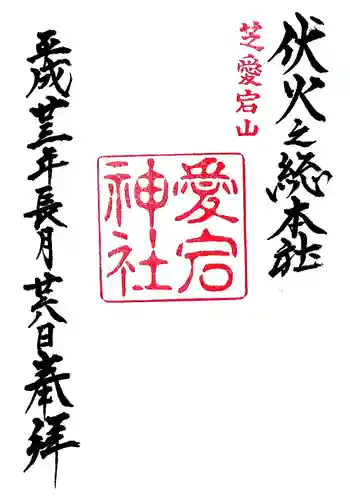 伏火之総本社
芝愛宕山
愛宕
神社
平成廿三年長月廿八日奉拝